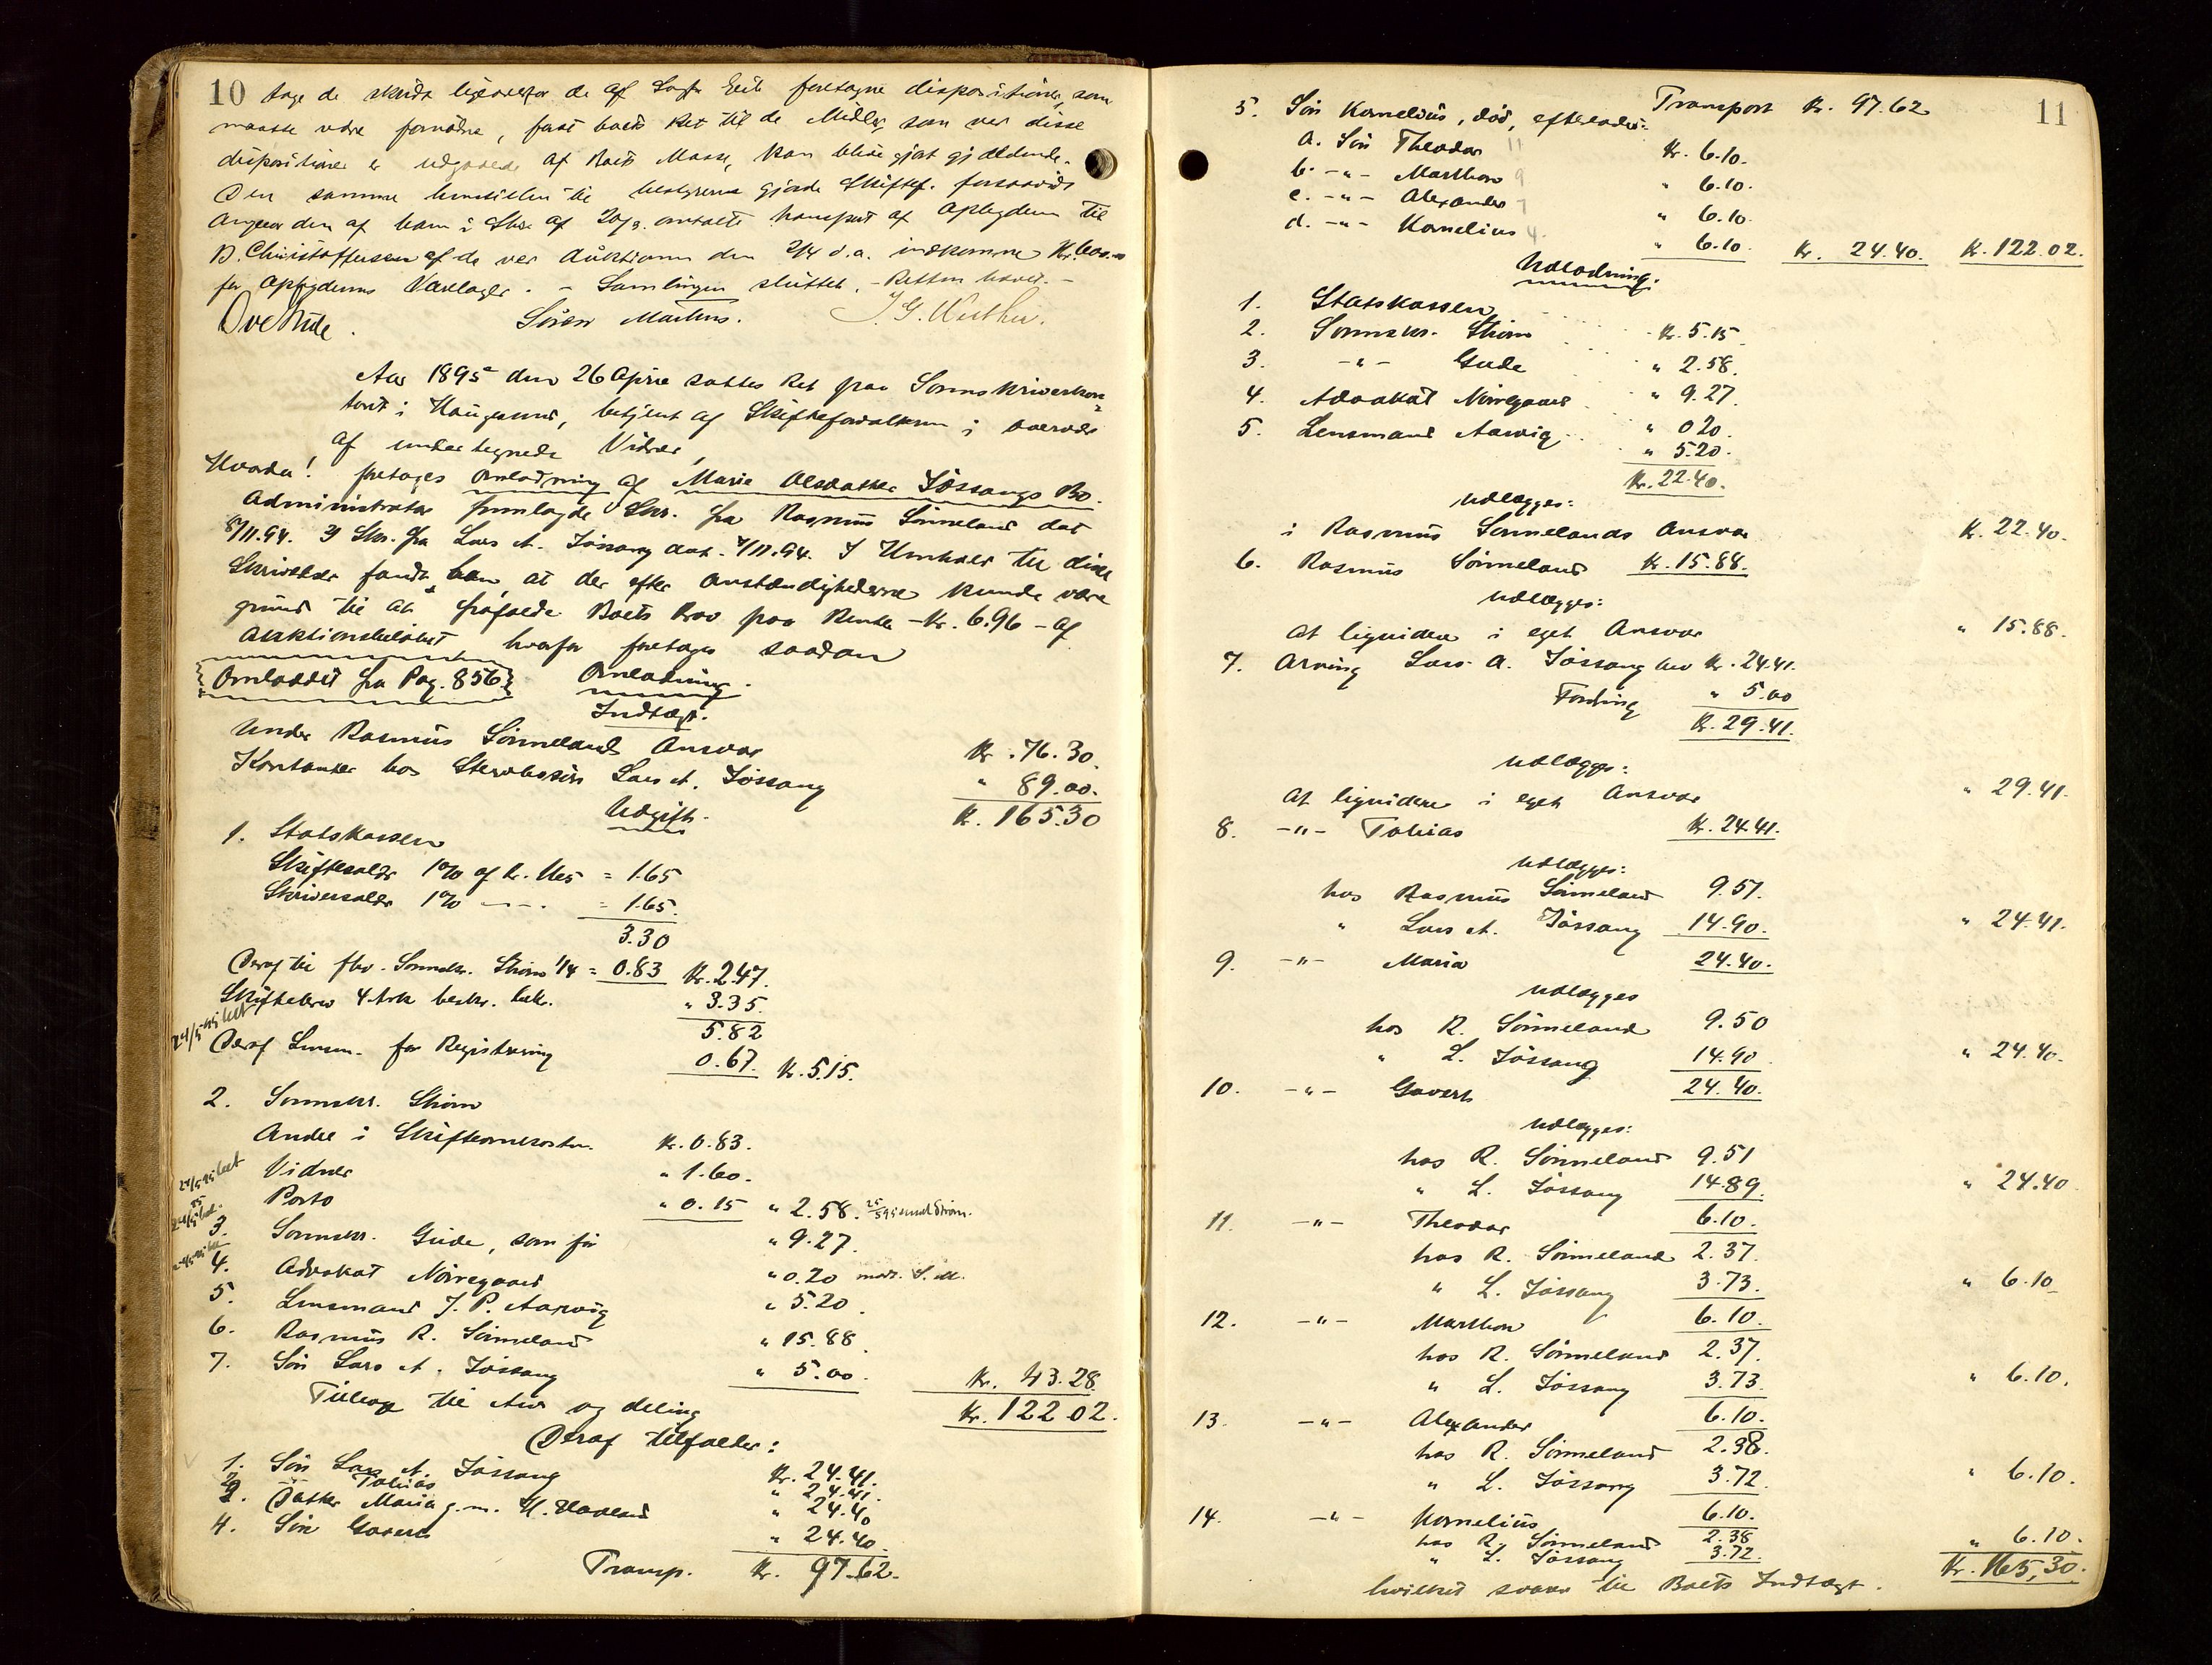 10 tage de skridt ligeoverfor de af Lars Eeik foretagne dispositioner, som
maatte være fornødne, forat boets Ret til de Midler, som ved disse
dispositioner er udgaaede af Boets Masse, kan blive gjort gjældende.
Den samme henstillen til bestyrerne gjorde Skiftef. forsaavidt
angaar den af ham i Skr. af 20/3. omtalte transport af Apbygdens til
B. Christoffersen af de ved Auktionen den 2/4 d.a. indkomne Kr.
for Varelager. - Samlingen sluttet. - Retten hævet. -
Ove Eide. Sören Martens. J. G. Wüsthu.
Aar 1895 den 26 April sattes Ret paa Sorenskriverkon-
toret i Haugesund, betjent af Skifteforvalteren i overvær
af undertegnede Vidner,
Hvorda! foretoges Omlodning af Marie Olsdatter Jössangs Bo.
Administrator fremlagde Skr. fra Rasmus Sönneland dat
8/11.94. og Skr. fra Lars A. Jössang dat. 7/11.94. I Henhold til disse
Skrivelser fandt han, at der efter Omstændighederne kunde være
grund til at frafalde Boets Krav paa Renter - Kr. 6.96 - af
Auktionsbelöbet hvorfor foretoges saadan
Omloddet fra Pag. 856 Omlodning.
Indtægt.
Under Rasmus Sönnelands Ansvar Kr. 76.30.
Kontanter hos Stervboets Sön Lars A. Jössang " 89.00.
Kr. 165.30
Udgift.
1. Statskassen
Skiftesalær 1% af Kr. 165 = 1.65
Skriversalær 1% - - - = 1.65.
3.30
Deraf til fhv. Sorenskr. Ström 1/4 = 0.83 Kr. 2.47.
Skiftebrev 4 Ark beskr. " 3.35.
5.82
Deraf Lensm. for Registrering 0.67. Kr. 5.15.
2. Sorenskr. Ström
Andel i Skifteomkostn. Kr. 0.83.
Vidner " 1.60.
Porto " 0.15 " 2.58.
3. Sorenskr. Gude, som för " 9.27.
4. Advokat Nörregaard " 0.20
5. Lensmand J. P. Aarvig " 5.20.
6. Rasmus R. Sönneland " 15.88.
7. Sön Lars A. Jössang " 5.00. Kr. 43.28.
Tilbage til Arv og deling Kr. 122.02.
Deraf tilfalder:
1. Sön Lars A. Jössang Kr. 24.41.
2. -"- Tobias " 24.41.
3. Datter Maria g.m. H. Haaland " 24.40
4. Sön Govert " 24.40.
Transp. Kr. 97.62.
11
Transport Kr. 97.62
5. Sön Kornelius, död, efterlader:
a. Sön Theodor 11 Kr. 6.10.
b. -"- Marthon 9 " 6.10.
c. -"- Alexander 7 " 6.10.
d. -"- Kornelius 4. " 6.10. Kr. 24.40. Kr. 122.02.
Udlodning.
1. Statskassen Kr. 5.15
2. Sorenskr. Ström " 2.58.
3. -"- Gude " 9.27.
4. Advokat Nörregaard " 0.20.
5. Lensmand Aarvig " 5.20.
Kr. 22.40.
Udlægges:
i Rasmus Sönnelands Ansvar Kr. 22.40.
6. Rasmus Sönneland Kr. 15.88.
Udlægges:
At liquidere i eget Ansvar " 15.88.
7. Arving Lars A. Jössang Arv Kr. 24.41.
Fordring " 5.00
Kr. 29.41.
Udlægges:
At liquidere i eget Ansvar " 29.41.
8. -"- Tobias Kr. 24.41.
Udlægges:
hos Rasmus Sönneland 9.51.
" Lars A. Jössang 14.90. " 24.41.
9. -"- Maria 24.40.
Udlægges
hos R. Sönneland 9.50
" L. Jössang 14.90. " 24.40.
10. -"- Govert 24.40.
Udlægges:
hos R. Sönneland 9.51
" L. Jössang 14.89. " 24.40
11. -"- Theodor 6.10.
hos R. Sönneland 2.37.
" L. Jössang 3.73. " 6.10.
12. -"- Marthon 6.10.
hos R. Sönneland 2.37.
" L. Jössang 3.73. " 6.10.
13. -"- Alexander 6.10.
hos R. Sönneland 2.38.
" L. Jössang 3.72. " 6.10.
14. -"- Kornelius 6.10.
hos R. Sönneland 2.38
" L. Jössang 3.72. " 6.10.
Kr. 165,30.
hvilket svarer til Boets Indtægt.